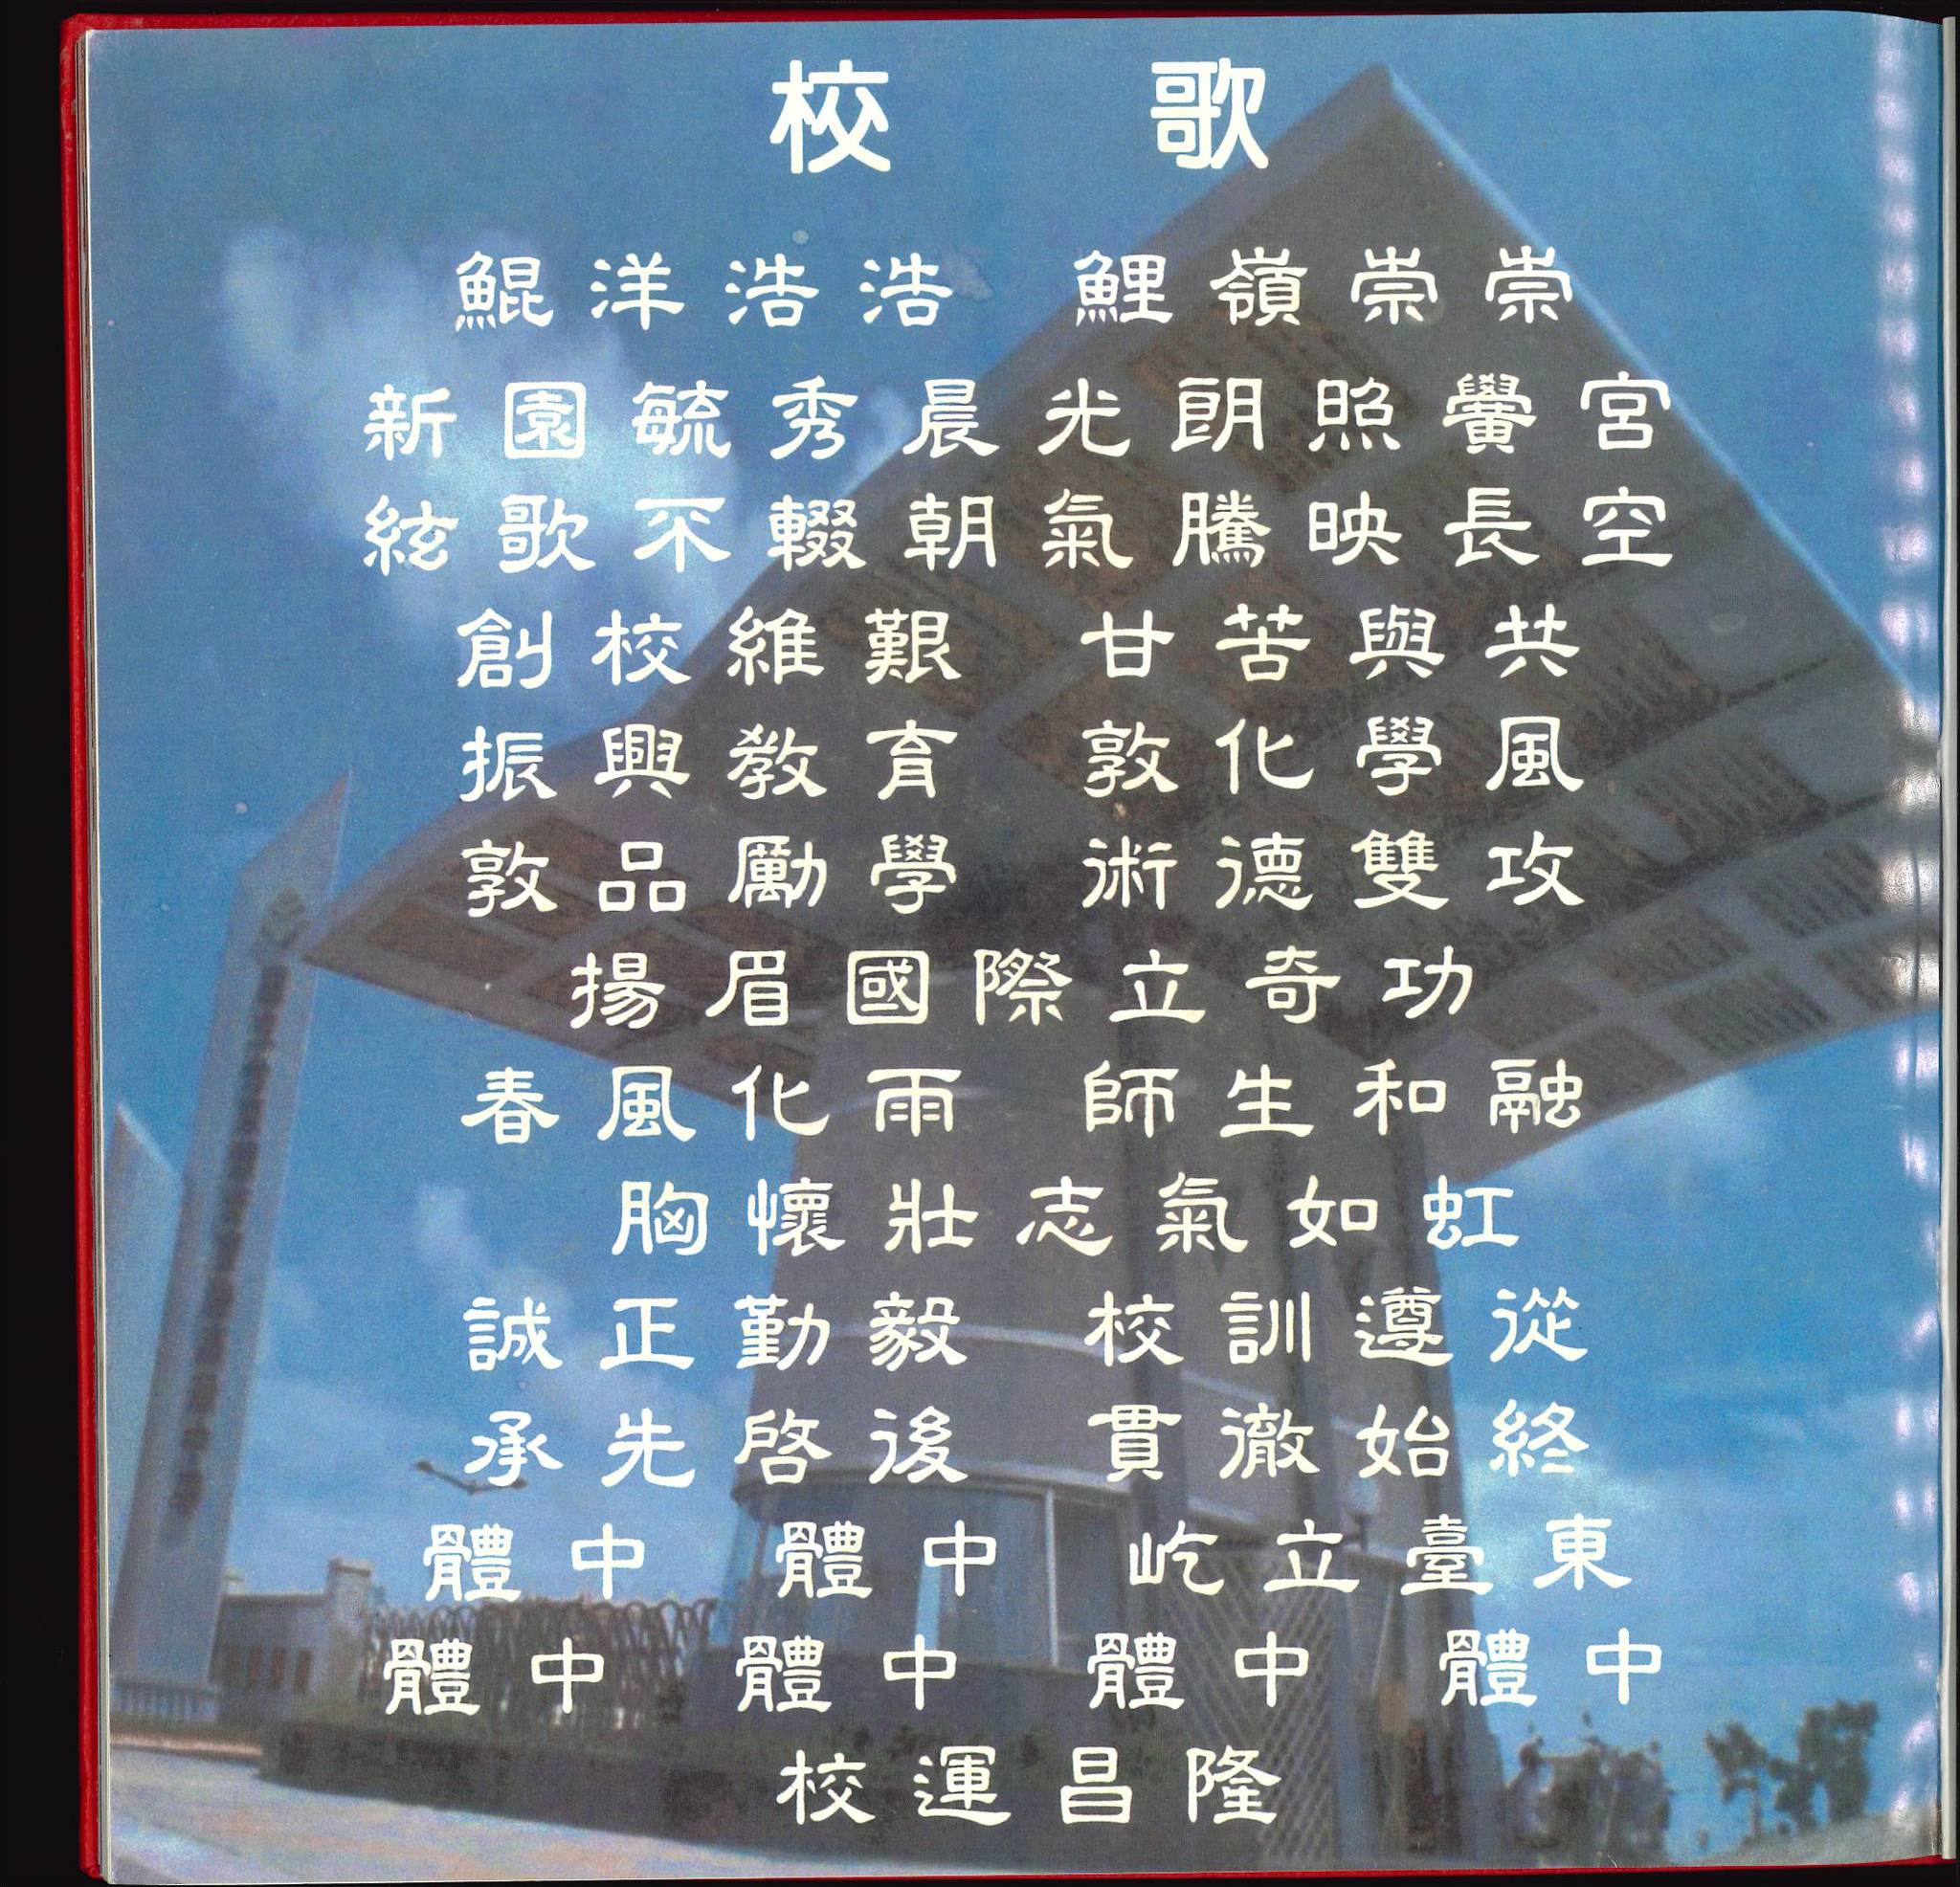 校歌
鯤洋浩浩 鯉嶺崇崇
新園毓秀晨光朗照黌宮
絃歌不輟朝氣騰映長空
創校維艱 甘苦與共
振興教育 敦化學風
敦品勵學 術德雙攻
揚眉國際立奇功
春風化雨 師生和融
胸懷壯志氣如虹
誠正勤毅 校訓遵從
承先啓後 貫徹始終
體中 體中 屹立臺東
體中 體中 體中 體中
校運昌隆